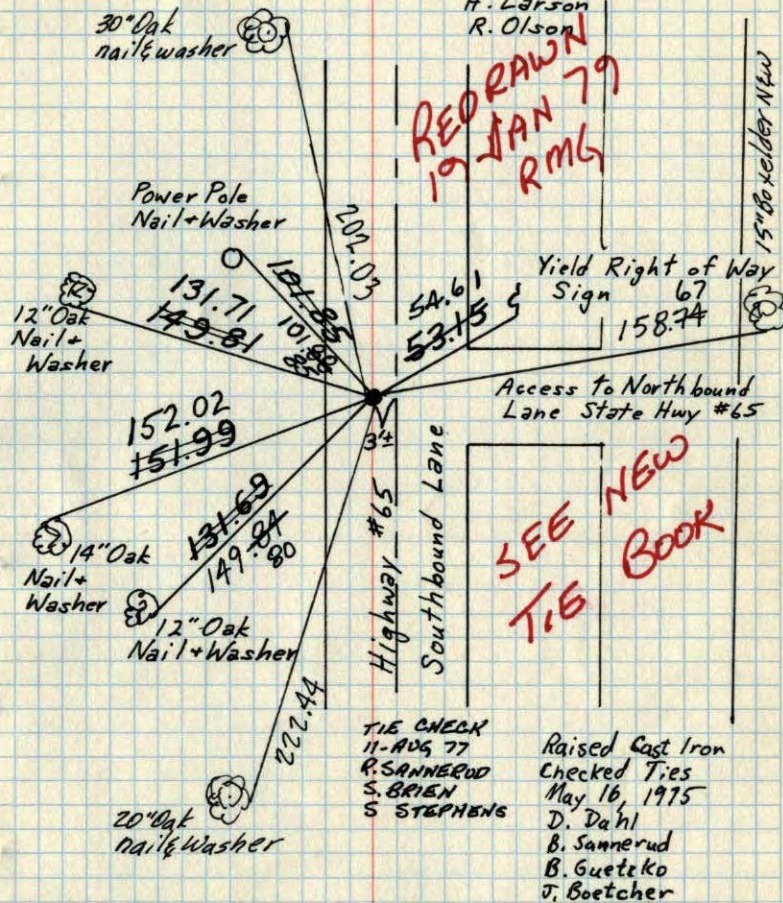 H. Larson
R. Olson
30" Oak
nail & washer
REDRAWN
19 JAN 79
RMG
15" Boxelder NEW
Power Pole
Nail + Washer
202.03
101.85
101
131.71
149.81
12" Oak
Nail +
Washer
54.61
53.15
Yield Right of Way
Sign
67
158.74
Access to Northbound
Lane State Hwy #65
3'±
152.02
151.99
14" Oak
Nail +
Washer
131.69
149.84
80
12" Oak
Nail + Washer
Highway #65
Southbound Lane
SEE NEW
TIE BOOK
222.44
20" Oak
nail & Washer
TIE CHECK
11-AUG 77
R. SANNERUD
S. BRIEN
S STEPHENS
Raised Cast Iron
Checked Ties
May 16, 1975
D. Dahl
B. Sannerud
B. Guetzko
J. Boetcher